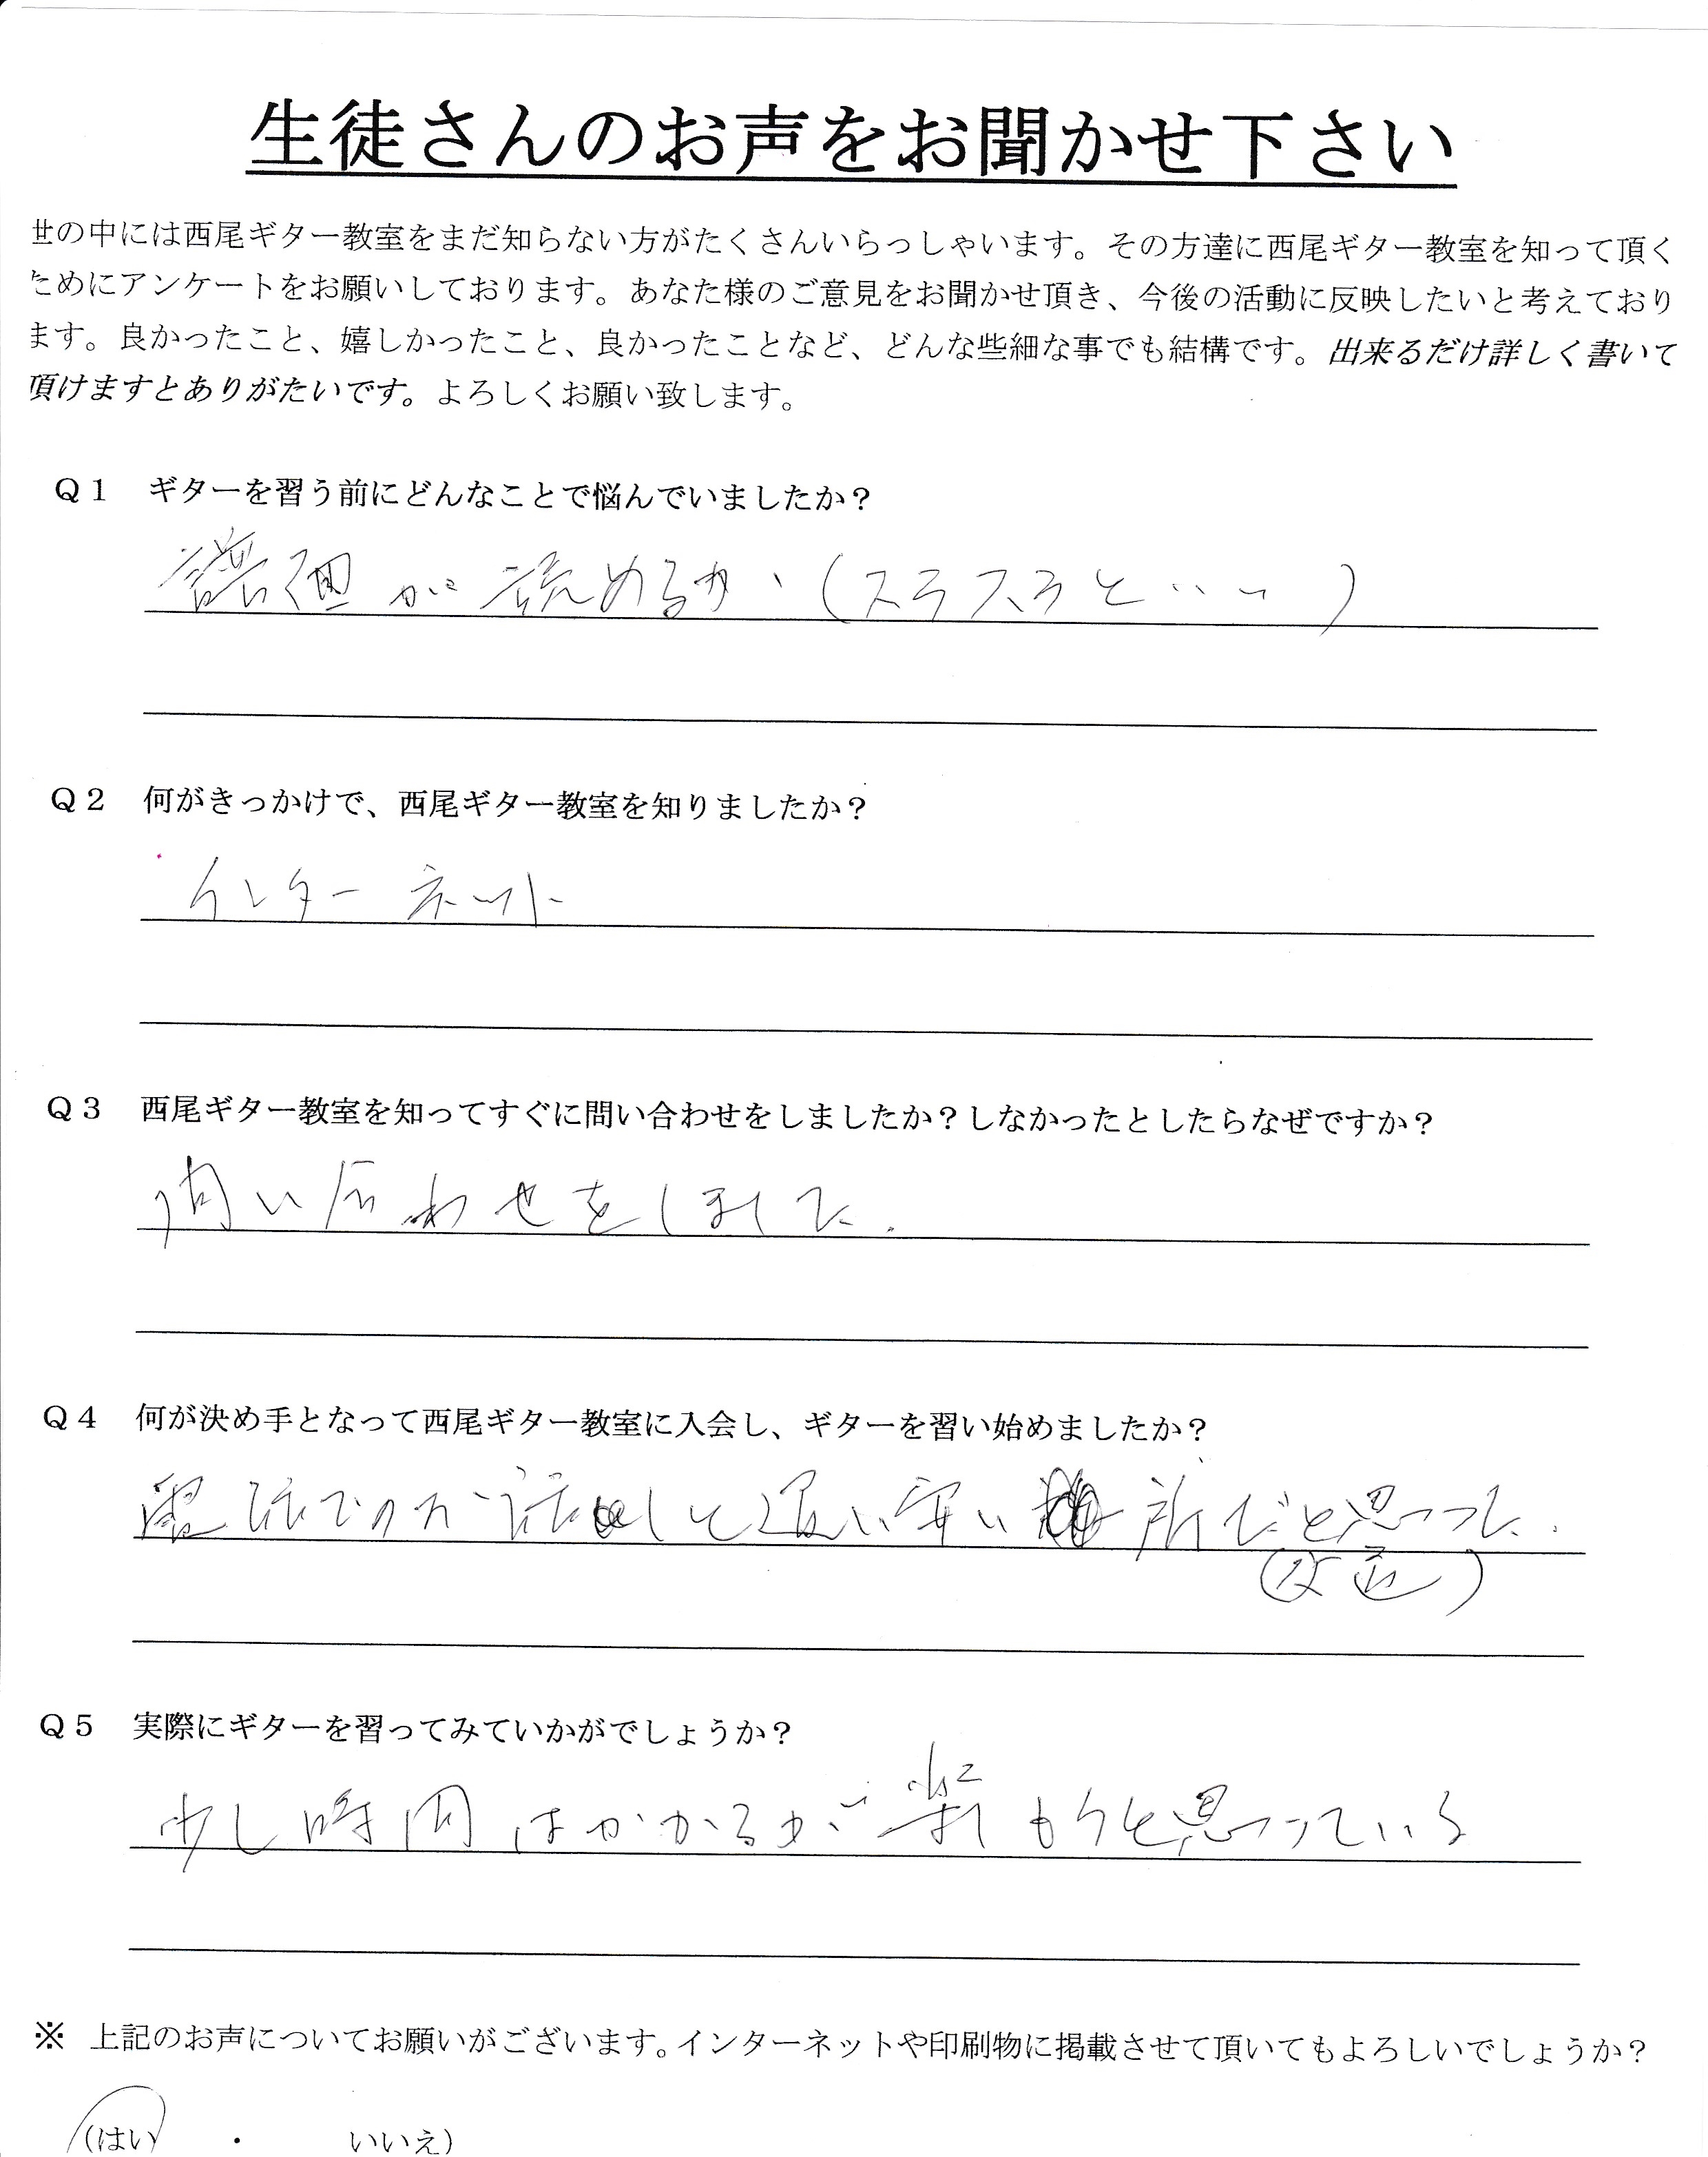 生徒さんのお声をお聞かせ下さい
世の中には西尾ギター教室をまだ知らない方がたくさんいらっしゃいます。その方達に西尾ギター教室を知って頂く
ためにアンケートをお願いしております。あなた様のご意見をお聞かせ頂き、今後の活動に反映したいと考えており
ます。良かったこと、嬉しかったこと、良かったことなど、どんな些細な事でも結構です。出来るだけ詳しく書いて
頂けますとありがたいです。よろしくお願い致します。
Q1 ギターを習う前にどんなことで悩んでいましたか?
譜面が読めるか、(スラスラと…)
Q2 何がきっかけで、西尾ギター教室を知りましたか?
インターネット
Q3 西尾ギター教室を知ってすぐに問い合わせをしましたか?しなかったとしたらなぜですか?
問い合わせをしました.
Q4 何が決め手となって西尾ギター教室に入会し、ギターを習い始めましたか?
電話での 話しと通い安い 所だと思った.
Q5 実際にギターを習ってみていかがでしょうか?
少し時間はかかるが もうと思っている
※ 上記のお声についてお願いがございます。インターネットや印刷物に掲載させて頂いてもよろしいでしょうか?
(はい ・ いいえ)